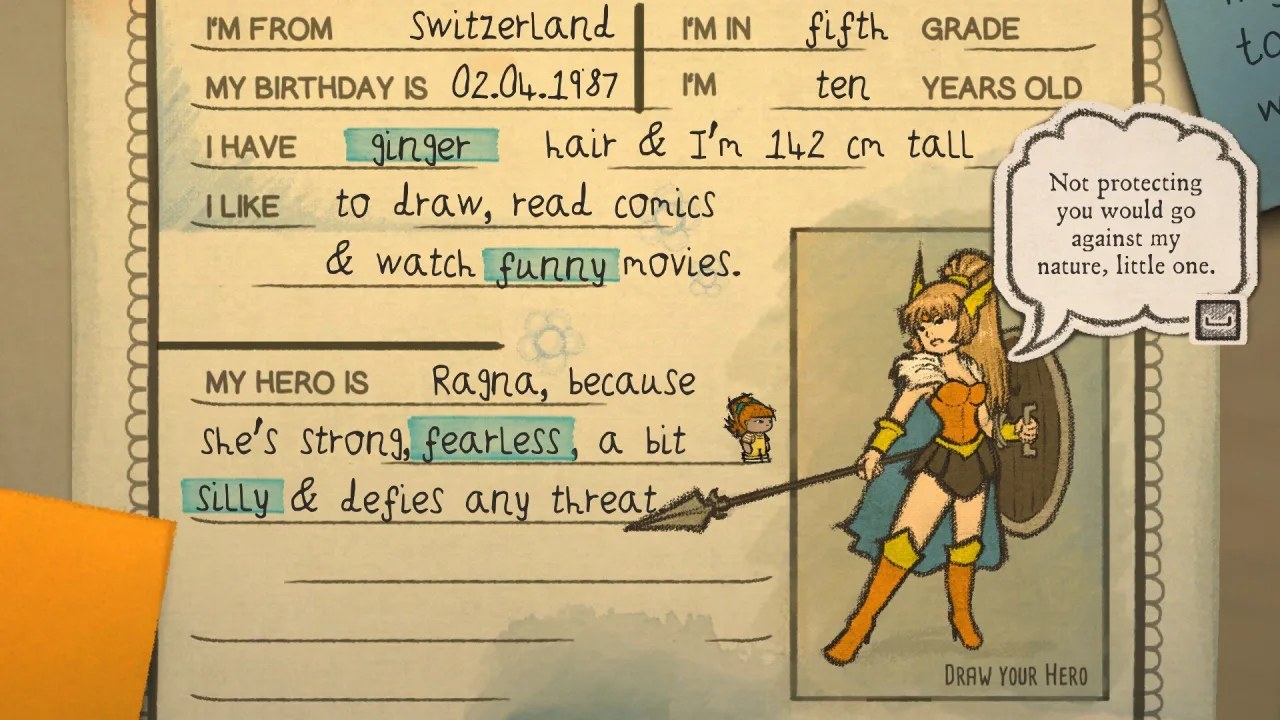 I'M FROM Switzerland I'M IN fifth GRADE
MY BIRTHDAY IS 02.04.1987 I'M ten YEARS OLD
I HAVE ginger hair & I'm 142 cm tall
I LIKE to draw, read comics
& watch funny movies.
MY HERO IS Ragna, because
she's strong, fearless, a bit
silly & defies any threat
Not protecting
you would go
against my
nature, little one.
DRAW YOUR HERO